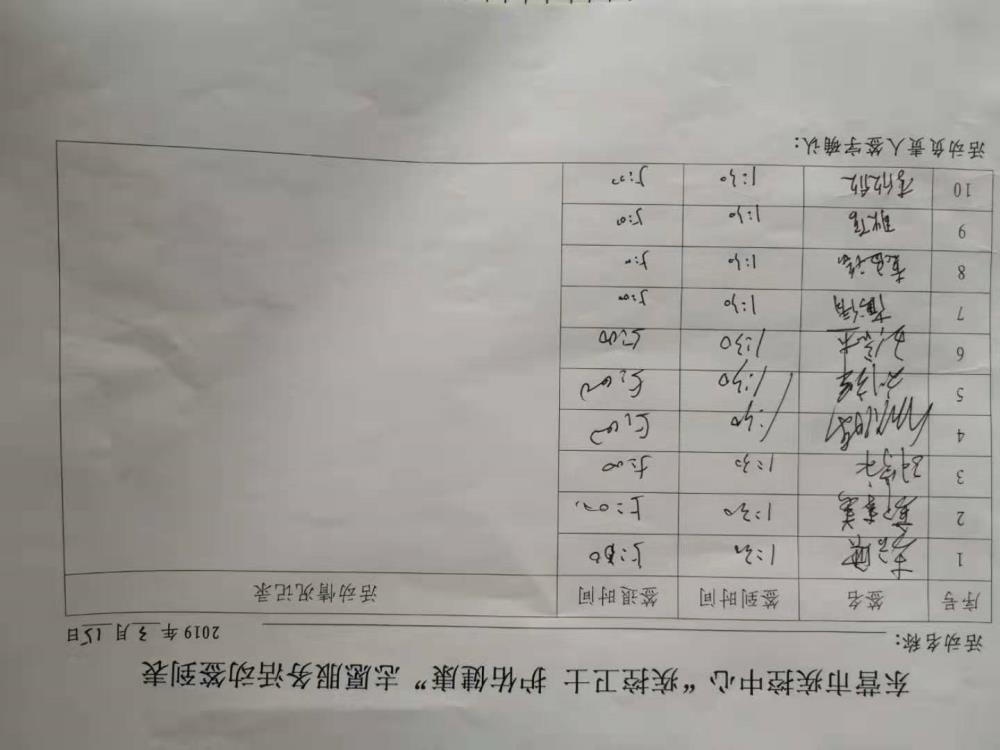 东营市疾控中心“疾控卫士 护佑健康”志愿服务活动签到表
活动名称： 2019年3月15日
序号 签名 签到时间 签退时间 活动情况记录
1 1:30 5:00
2 1:30 5:00
3 1:30 5:00
4 1:30 5:00
5 1:30 5:00
6 1:30 5:00
7 1:30 5:00
8 1:30 5:00
9 1:30 5:00
10 1:30 5:00
活动负责人签字确认：